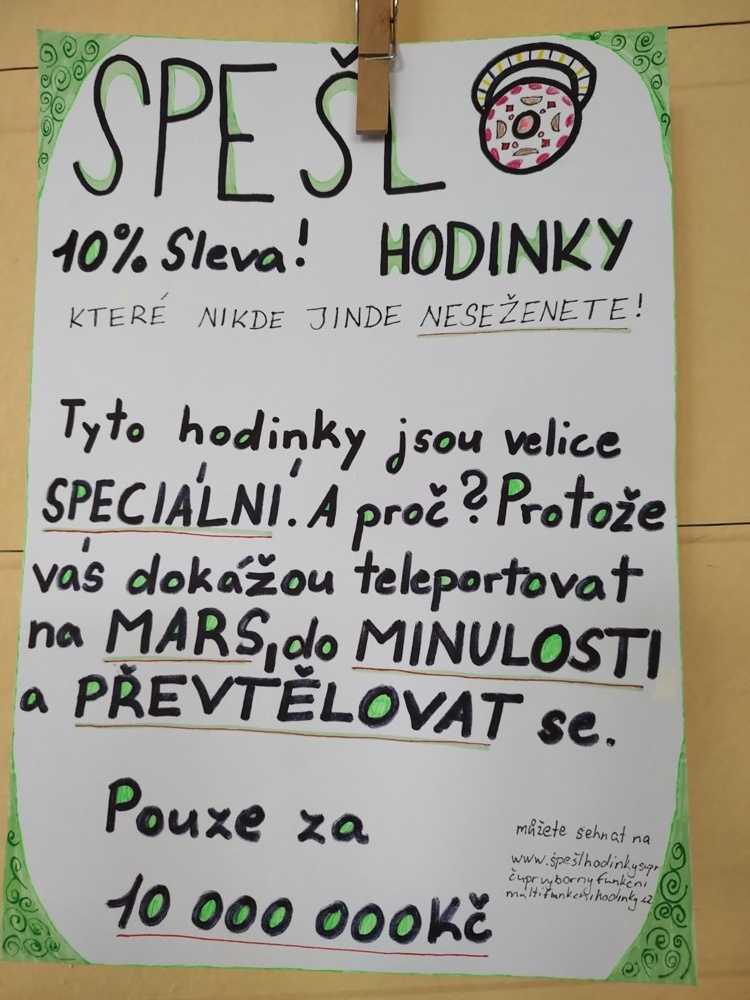 SPEŠL
10% Sleva! HODINKY
KTERÉ NIKDE JINDE NESEŽENETE!
Tyto hodinky jsou velice
SPECIÁLNÍ. A proč? Protože
vás dokážou teleportovat
na MARS, do MINULOSTI
a PŘEVTĚLOVAT se.
Pouze za
10 000 000Kč
můžete sehnat na
www.špešlhodinkysupr
čuprvybornyfunkční
multifunkčníhodinky.cz